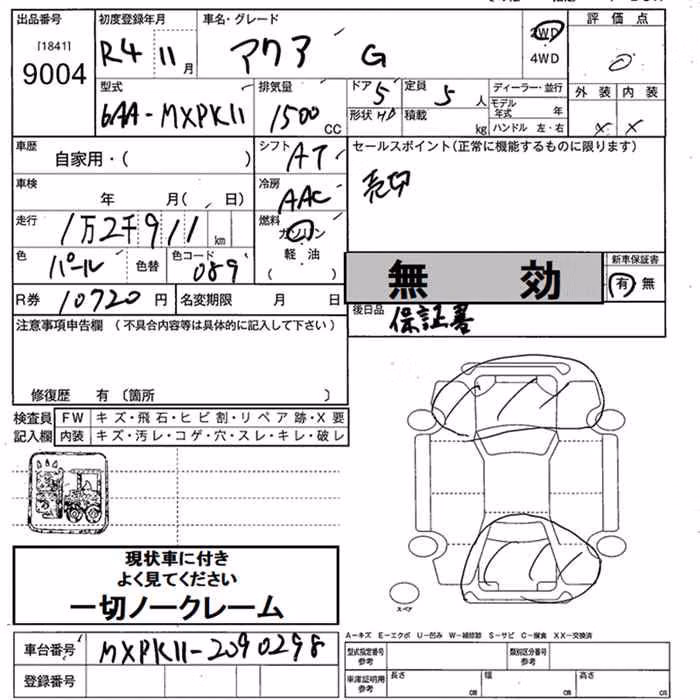 出品番号 初度登録年月 車名・グレード 評価点
[1841]
9004 R4 11月 アクア G 2WD
4WD
外装 内装
× ×
型式 排気量 ドア 定員 ディーラー・並行
6AA-MXPK11 1500cc 5 5人 モデル年式 年
形状 HB 積載 kg ハンドル 左・右
車歴 シフト セールスポイント(正常に機能するものに限ります)
自家用・( ) AT
車検 冷房 売切
年 月( 日) AAC
走行 燃料
1万2千911km ガソリン
軽油
( )
色 色替 色コード 新車保証書
パール 089 無効 有 無
R券 10720円 名変期限 月 日 後日品 保証書
注意事項申告欄(不具合内容等は具体的に記入して下さい)
修復歴 有〔箇所 〕
検査員 FW キズ・飛石・ヒビ割・リペア跡・X要
記入欄 内装 キズ・汚レ・コゲ・穴・スレ・キレ・破レ
現状車に付き
よく見てください
一切ノークレーム
スペア
A-キズ E-エクボ U-凹み W-補修跡 S-サビ C-腐食 XX-交換済
車台番号 MXPK11-2090298 型式指定番号 参考 類別区分番号 参考
登録番号 車庫証明用 参考 長さ cm 幅 cm 高さ cm